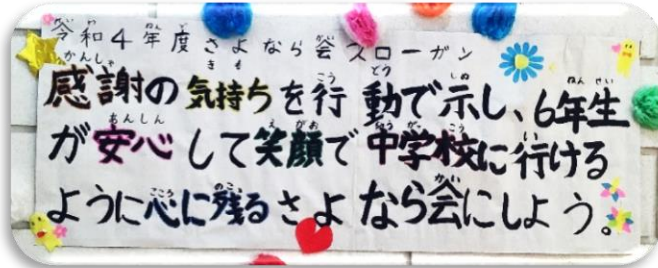 令和4年度さよなら会スローガン
感謝の気持ちを行動で示し、6年生
が安心して笑顔で中学校に行ける
ように心に残るさよなら会にしよう。